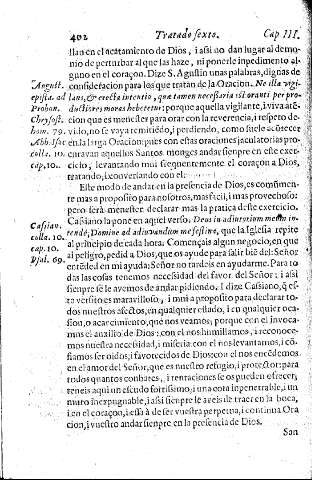 402 Tratado sexto. Cap III.
llan en el acatamiento de Dios, i assi no dan lugar al demo-
nio de perturbar al que las haze, ni ponerle impedimento al-
guno en el coraçon. Dize S. Agustin unas palabras, dignas de
August. consideracion para los que tratan de la Oracion. Ne illa vigi-
epist. ad lans, & erecta intentio, quæ tamen necessaria est oranti per pro-
Proban. ductiores moras hebetetur: porque aquella vigilante, i viva atẽ-
Chrysost. cion que es menester para orar con la reverencia, i respeto de-
hom. 79. vido, no se vaya remitiẽdo, i perdiendo, como suele acõtecer
Abb. Isac en la larga Oracion; pues con estas oraciones jaculatorias pro-
colla. 10. curavan aquellos Santos monges andar siempre en este exer-
cap. 10. cicio, levantando mui frequentemente el coraçon a Dios,
tratando, i cõversando con el.
Este modo de andar en la presencia de Dios, es comũmen-
te mas a proposito para nosotros, mas facil, i mas provechoso:
pero serà menester declarar mas la pratica deste exercicio.
Cassian. Cassiano la pone en aquel verso: Deus in adiutorium meum in-
colla. 10. tende, Domine ad adiuvandum me festina, que la Iglesia repite
cap. 10. al principio de cada hora. Començais algun negocio, en que
Psal. 69. ai peligro, pedid a Dios, que os ayude para salir biẽ del: Señor
entẽded en mi ayuda: Señor no tardeis en ayudarme. Para to
das las cosas tenemos necessidad del favor del Señor; i assi
siempre se le avemos de andar pidiendo. I dize Cassiano, q̃ es-
te verso es maravilloso, i mui a proposito para declarar to-
dos nuestros afectos, en qualquier estado, i en qualquier oca-
sion, o acaecimiento, que nos veamos; porque con el invoca-
mos el auxilio de Dios: con el nos humillamos, i reconoce-
mos nuestra necessidad, i miseria: con el nos levantamos, i cõ-
fiamos ser oidos, i favorecidos de Dios: con el nos encẽdemos
en el amor del Señor, que es nuestro refugio, i protector: para
todos quantos combates, i tentaciones se os pueden ofrecer,
teneis aqui un escudo fortissimo, i una cota impenetrable, i un
muro inexpugnable, i assi siempre le aveis de traer en la boca,
i en el coraçon, i essa à de ser vuestra perpetua, i continua Ora
cion, i vuestro andar siempre en la presencia de Dios.
San